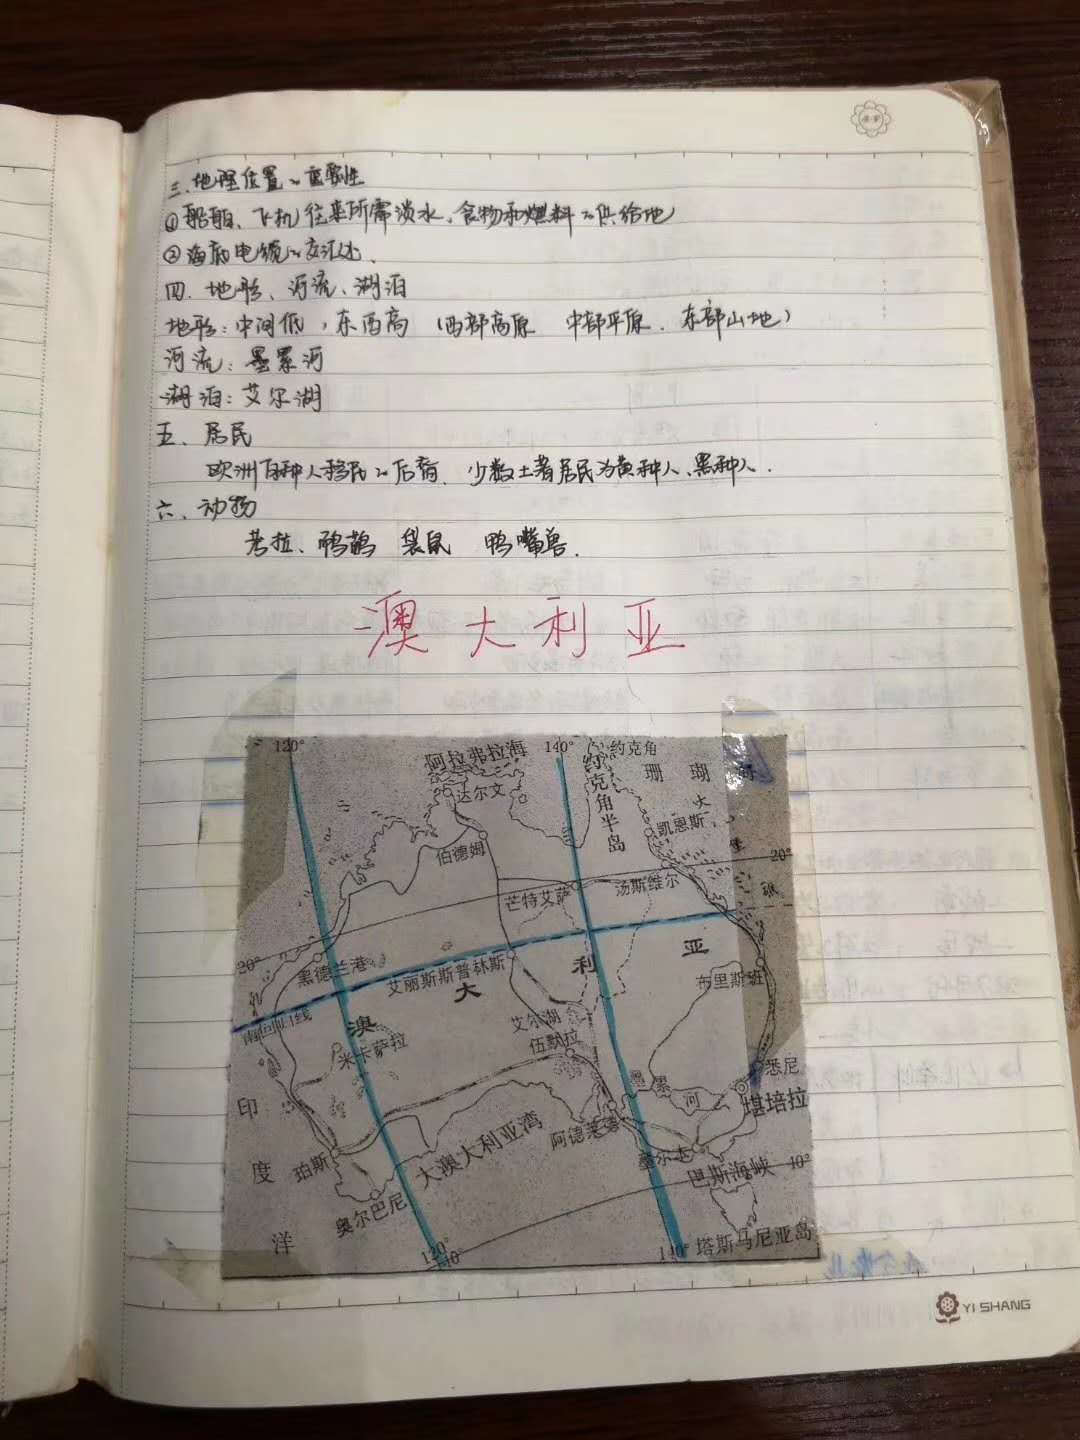 三、地理位置的重要性
①船舶、飞机往来所需淡水、食物和燃料的供给地
②海底电缆的交汇处.
四、地形、河流、湖泊
地形：中间低，东西高（西部高原 中部平原. 东部山地）
河流：墨累河
湖泊：艾尔湖
五、居民
欧洲白种人移民的后裔. 少数土著居民为黄种人、黑种人.
六、动物
考拉、鸸鹋 袋鼠 鸭嘴兽.
澳大利亚
120° 阿拉弗拉海 140° 约克角
约克角半岛
珊瑚
达尔文
大
凯恩斯
堡
伯德姆
20°
汤斯维尔
芒特艾萨
礁
20°
黑德兰港
艾丽斯斯普林斯
澳大利亚
布里斯班
南回归线
艾尔湖
米卡萨拉
伍默拉
悉尼
墨累河
堪培拉
印度洋
大澳大利亚湾
阿德莱德
珀斯
墨尔本
巴斯海峡
40°
奥尔巴尼
120°
40°
140°
塔斯马尼亚岛
YI SHANG